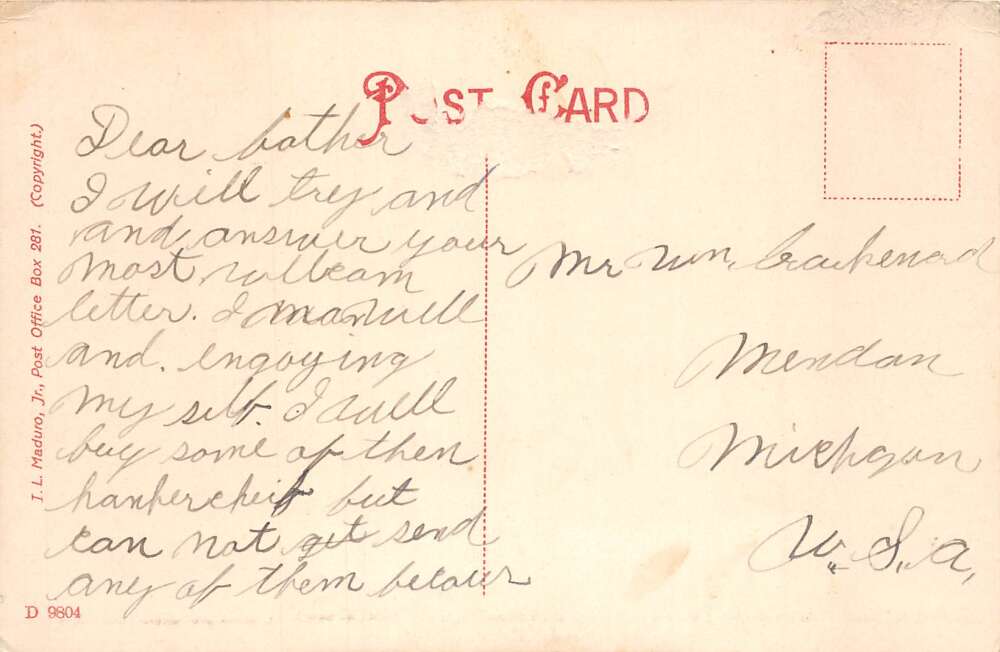 POST CARD
Dear father
I will try and
and answer your
most wellcam
letter. I am well
and. engoying
my self. I will
buy some of then
hankercheif but
can not get send
any of them becaur
Mr Wm,
Mendan
Michgan
U. S. A,
I. L. Maduro, Jr., Post Office Box 281. (Copyright.)
D 9804